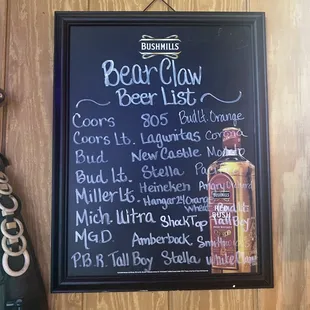 BUSHMILLS
Bear Claw
Beer List
Coors 805 Bud Lt. Orange
Coors Lt. Lagunitas Corona
Bud. New Castle
Bud Lt. Stella
Miller Lt. Heineken Angry
Mich Ultra Hangar 24 Orange wheat
M.G.D. Shock Top Tall Boy
Amberbock
P.B.R Tall Boy Stella White
BUSHMILLS
RED
BUSH